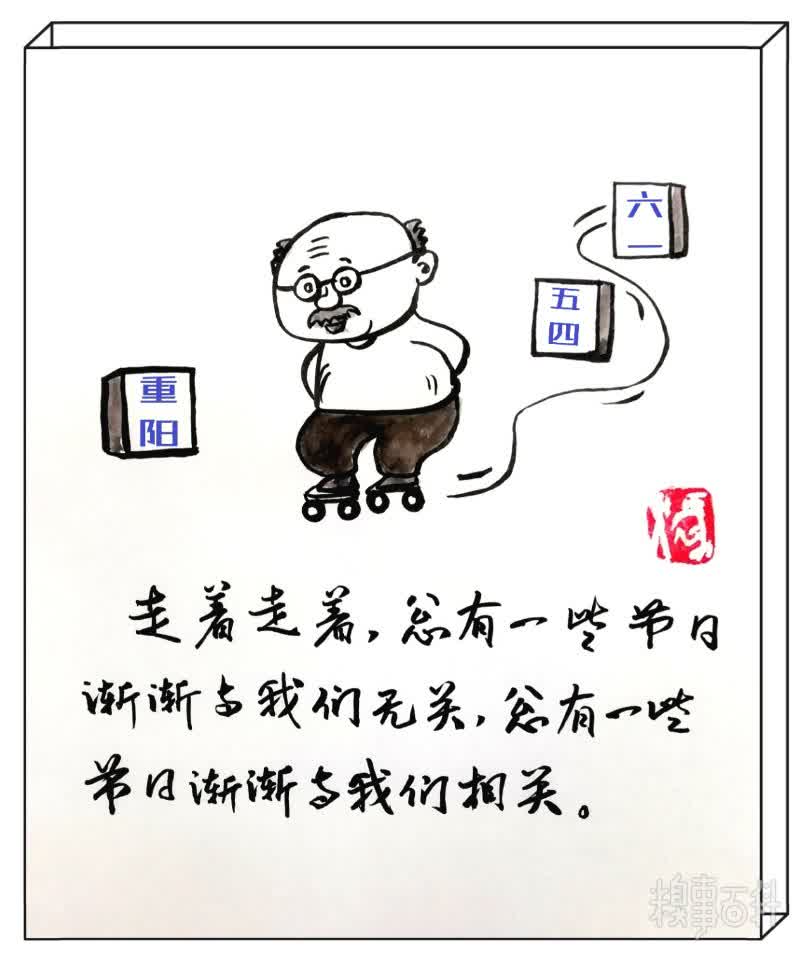 六
一
五
四
重
阳
走着走着，总有一些节日
渐渐与我们无关，总有一些
节日渐渐与我们相关。
糗事百科